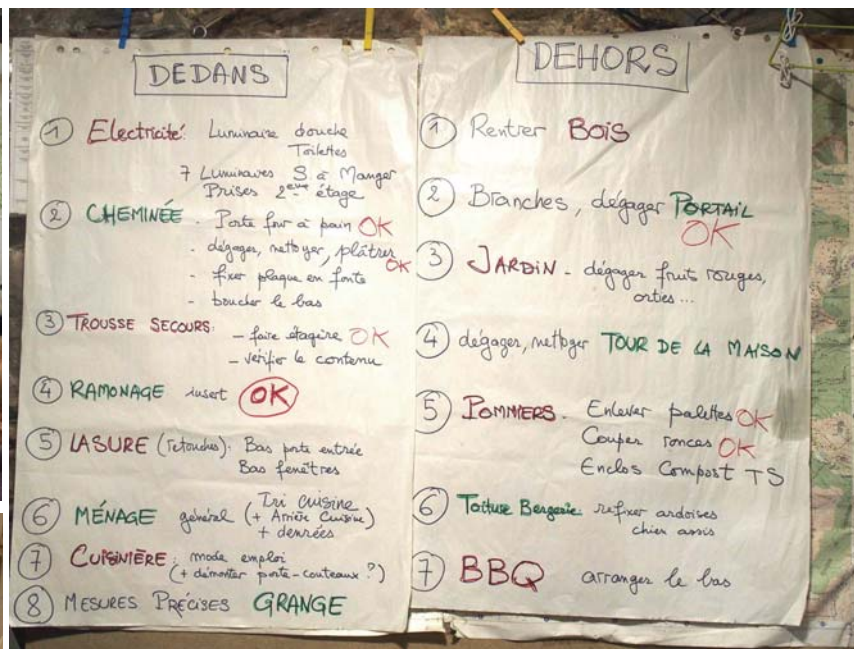 DEDANS
① Electricité: Luminaire douche
Toilettes
7 Luminaires S. à Manger
Prises 2ème étage
② CHEMINÉE - Porte four à pain OK
- dégager, nettoyer, plâtrer OK
- fixer plaque en fonte
- boucher le bas
③ TROUSSE SECOURS:
- faire étagère OK
- vérifier le contenu
④ RAMONAGE insert OK
⑤ LASURE (retouches). Bas porte entrée
Bas fenêtres
⑥ MÉNAGE général (Tri cuisine
+ Arrière Cuisine)
+ denrées
⑦ CUISINIÈRE: mode emploi
(+ démonter porte-couteaux ?)
⑧ MESURES PRÉCISES GRANGE
DEHORS
① Rentrer BOIS
② Branches, dégager PORTAIL
OK
③ JARDIN - dégager fruits rouges,
orties...
④ dégager, nettoyer TOUR DE LA MAISON
⑤ POMMIERS - Enlever palettes OK
Couper ronces OK
Enclos Compost TS
⑥ Toiture Bergerie: refixer ardoises
chien assis
⑦ BBQ arranger le bas